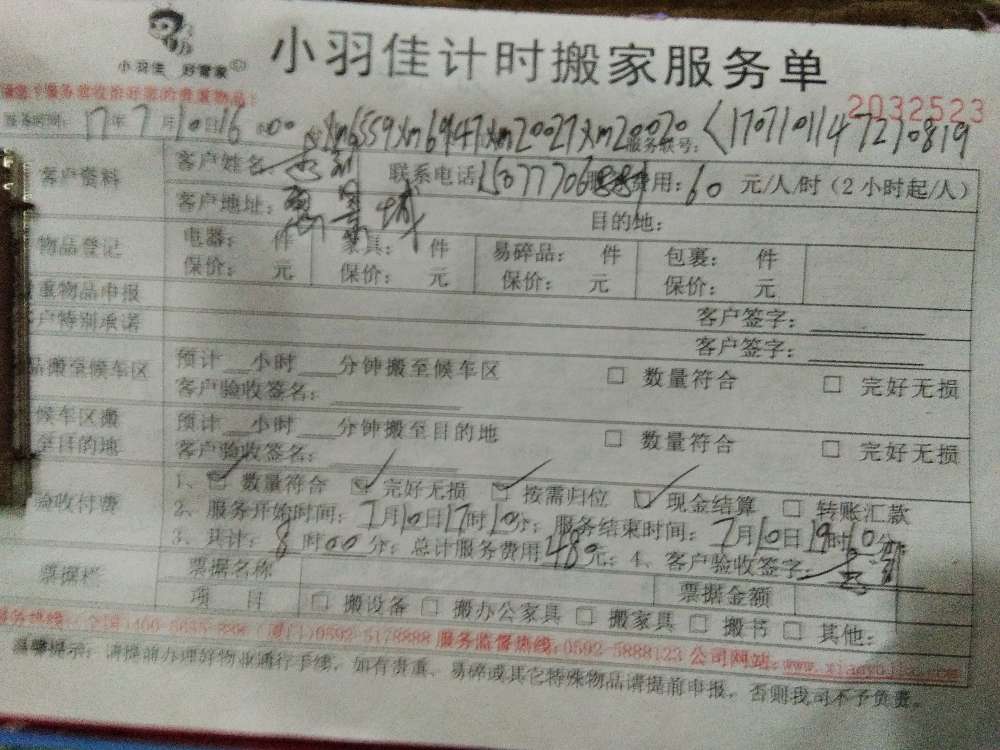 小羽佳 好管家
小羽佳计时搬家服务单
2032523
服务时间: 17年7月10日16:00 Xm6559Xm6947Xm20027Xm20020 服务联号: 1707101147270819
客户资料
客户姓名 联系电话 费用: 60 元/人/时（2小时起/人）
客户地址: 目的地:
物品登记
电器: 件 家具: 件 易碎品: 件 包裹: 件
保价: 元 保价: 元 保价: 元 保价: 元
重物品申报 客户签字:
户特别承诺 客户签字:
品搬至候车区 预计 小时 分钟搬至候车区 □ 数量符合 □ 完好无损
客户验收签名:
候车区搬至目的地 预计 小时 分钟搬至目的地 □ 数量符合 □ 完好无损
客户验收签名:
验收付费
1、☑ 数量符合 ☑ 完好无损 ☑ 按需归位 ☑ 现金结算 □ 转账汇款
2、服务开始时间: 7月10日17时10分; 服务结束时间: 7月10日19时10分
3、共计: 8时00分; 总计服务费用480元; 4、客户验收签字:
票据栏 票据名称 票据金额
项 目 □ 搬设备 □ 搬办公家具 □ 搬家具 □ 搬书 □ 其他:
服务热线: (厦门)0592-5178888 服务监督热线:0592-5888123 公司网站:
温馨提示: 请提前办理好物业通行手续，如有贵重、易碎或其它特殊物品请提前申报，否则我司不予负责。